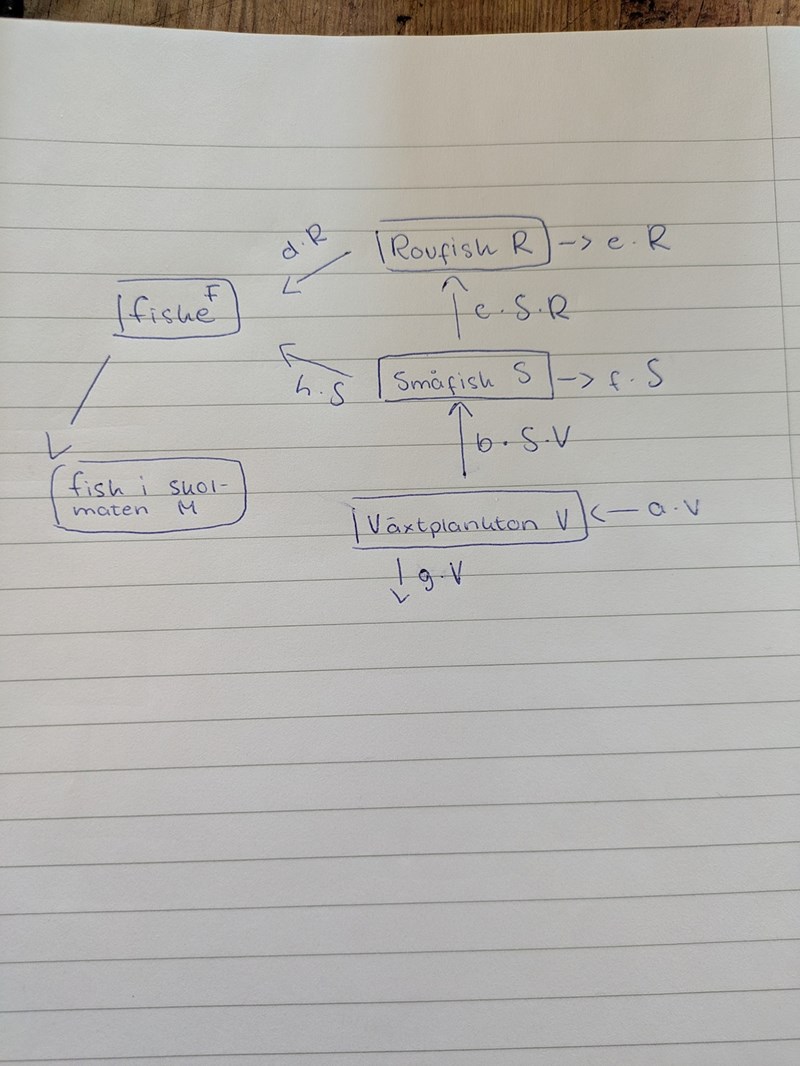 d.R
Rovfish R -> e.R
fishe F
c.S.R
h.S
Småfish S -> f.S
b.S.V
fish i skol-
maten M
Växtplankton V <- a.V
g.V